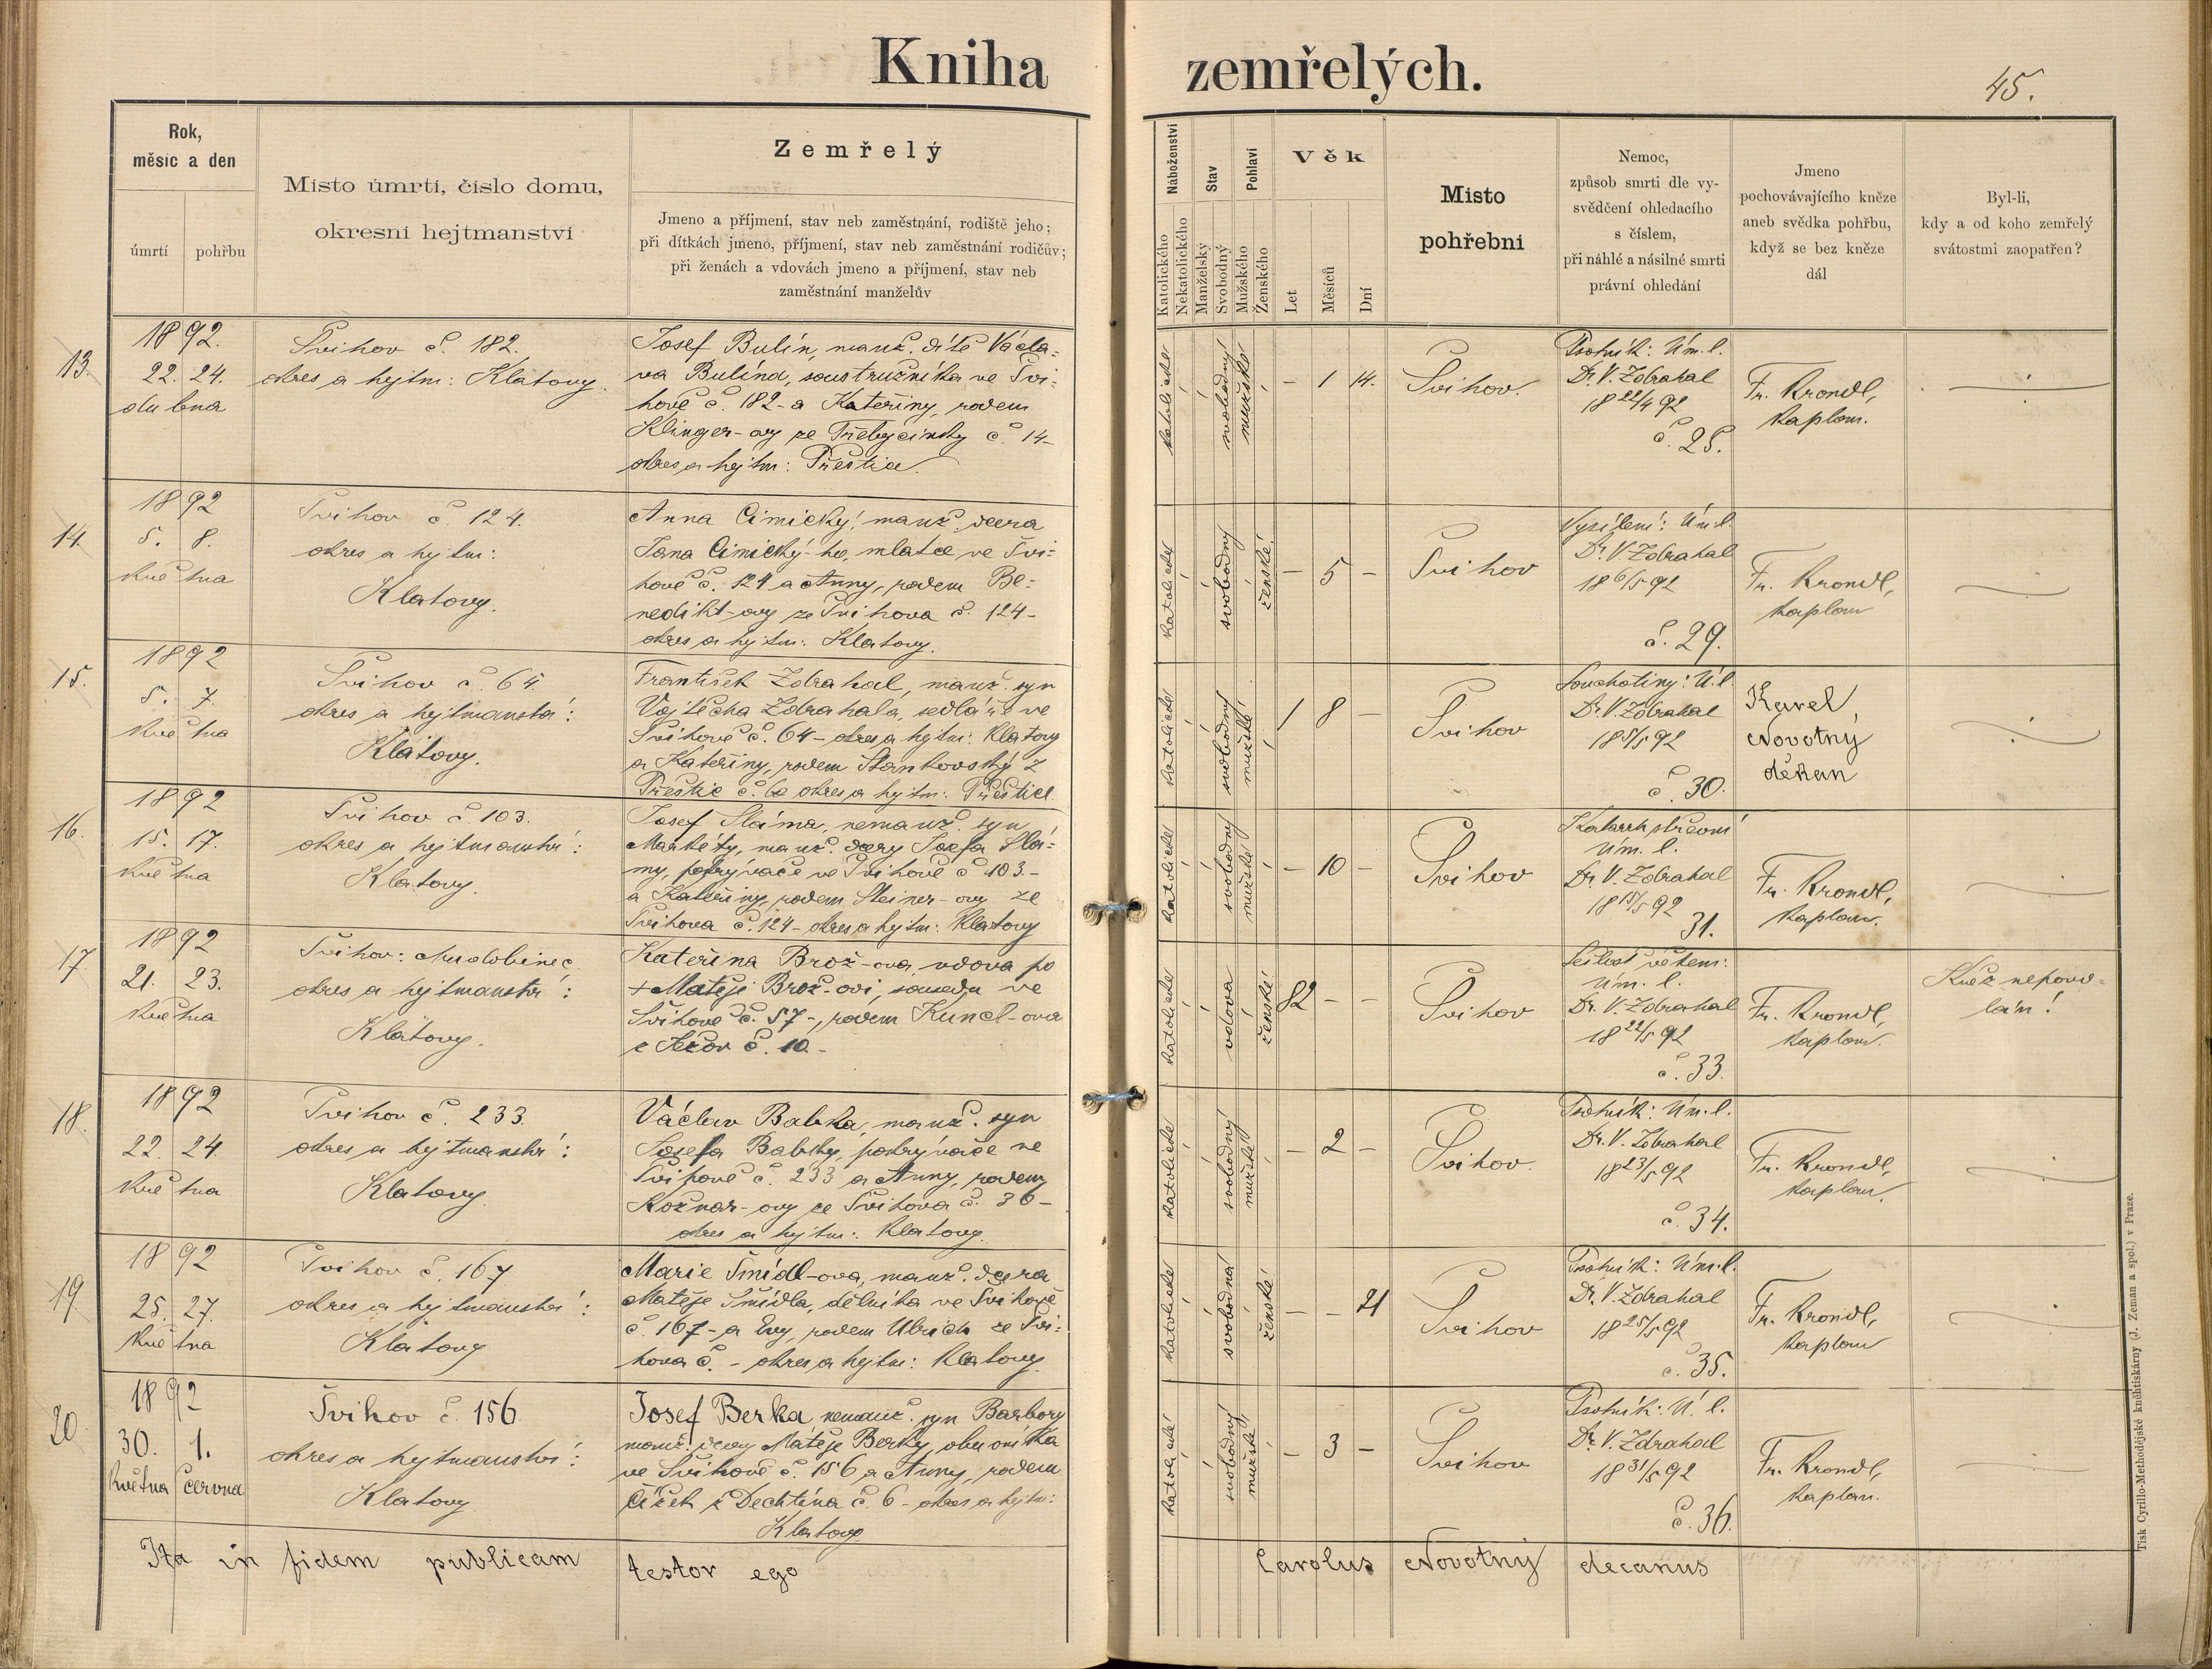 Kniha zemřelých.
45.
Rok,
měsíc a den
úmrtí
pohřbu
Místo úmrtí, číslo domu,
okresní hejtmanství
Zemřelý
Jmeno a příjmení, stav neb zaměstnání, rodiště jeho;
při dítkách jmeno, příjmení, stav neb zaměstnání rodičův;
při ženách a vdovách jmeno a příjmení, stav neb
zaměstnání manželův
Náboženství
Katolického
Nekatolického
Stav
Manželský
Svobodný
Pohlaví
Mužského
Ženského
Věk
Let
Měsíců
Dní
Místo
pohřební
Nemoc,
způsob smrti dle vy-
svědčení ohledacího
s číslem,
při náhlé a násilné smrti
právní ohledání
Jmeno
pochovávajícího kněze
aneb svědka pohřbu,
když se bez kněze
dál
Byl-li,
kdy a od koho zemřelý
svátostmi zaopatřen?
13.
1892.
22. 24.
dubna
Švihov č. 182.
okres a hejtm: Klatovy.
Josef Bulín, manž. dítě Václa-
va Bulína, soustružníka ve Švi-
hově č. 182 - a Kateřiny, rodem
Klinger-ovy ze Třebýcinky č. 14-
okres a hejtm: Přeštice.
katolické
svobodný
mužské
- 1 14.
Švihov.
Psotník: Úm. l.
Dr. V. Zdrahal
18 22/4 92
č. 25.
Fr. Krondl,
kaplan.
14.
1892
5. 8.
května
Švihov č. 124.
okres a hejtm:
Klatovy.
Anna Cimický, manž. dcera
Jana Cimický-ho, mlatce ve Švi-
hově č. 124 a Anny, rodem Be-
nedikt-ovy ze Švihova č. 124-
okres a hejtm: Klatovy.
katolické
svobodný
ženské
- 5 -
Švihov
Vysílení: Úm. l.
Dr. V. Zdrahal
18 6/5 92
č. 29.
Fr. Krondl,
kaplan
15.
1892
5. 7.
května
Švihov č. 64.
okres a hejtmanství:
Klatovy.
František Zdrahal, manž. syn
Vojtěcha Zdrahala, sedláře ve
Švihově č. 64 - okres a hejtm: Klatovy
a Kateřiny, rodem Stankovský z
Přeštic č. 60 okres a hejtm: Přeštice.
katolické
svobodný
mužské
1 8 -
Švihov
Souchotiny: Ú. l.
Dr. V. Zdrahal
18 5/5 92
č. 30.
Karel
Novotný
děkan
16.
1892
15. 17.
května
Švihov č. 103.
okres a hejtmanství:
Klatovy.
Josef Sláma, nemanž. syn
Markéty, manž. dcery Josefa Slá-
my, pokrývače ve Švihově č. 103.-
a Kateřiny, rodem Steiner-ovy ze
Švihova č. 124 - okres a hejtm: Klatovy
katolické
svobodný
mužské
- 10 -
Švihov
Katarrh střevní
Úm. l.
Dr. V. Zdrahal
18 15/5 92
31.
Fr. Krondl,
kaplan.
17.
1892
21. 23.
května
Švihov: chudobinec
okres a hejtmanství:
Klatovy.
Kateřina Brož-ova, vdova po
+ Matěji Brož-ovi, sousedu ve
Švihově č. 57 -, rodem Kuncl-ova
z Ježov č. 10.-
katolické
vdova
ženské
82 - -
Švihov
Sešlost věkem:
Úm. l.
Dr. V. Zdrahal
18 22/5 92
č. 33.
Fr. Krondl,
kaplan.
Kněz nepovo-
lán!
18.
1892
22. 24.
května
Švihov č. 233.
okres a hejtmanství:
Klatovy.
Václav Babka, manž. syn
Josefa Babky, pokrývače ve
Švihově č. 233 a Anny, rodem
Kožnar-ovy ze Švihova č. 36-
okres a hejtm: Klatovy.
katolické
svobodný
mužské
- 2 -
Švihov.
Psotník: Úm. l.
Dr. V. Zdrahal
18 23/5 92
č. 34.
Fr. Krondl,
kaplan.
19
1892
25. 27.
května
Švihov č. 167
okres a hejtmanství:
Klatovy
Marie Šmídl-ova, manž. dcera
Matěje Šmídla, dělníka ve Švihově
č. 167 - a Evy, rodem Ulrich ze Švi-
hova č. - okres a hejtm: Klatovy.
katolické
svobodná
ženské
- - 21
Švihov
Psotník: Úm. l.
Dr. V. Zdrahal
18 25/5 92
č. 35.
Fr. Krondl,
kaplan
20.
1892
30. 1.
května června
Švihov č. 156.
okres a hejtmanství:
Klatovy.
Josef Berka, nemanž. syn Barbory
manž. dcery Matěje Berky, obuvníka
ve Švihově č. 156 a Anny, rodem
Čížek z Dechtína č. 6 - okres a hejtm:
Klatovy.
katolické
svobodný
mužské
- 3 -
Švihov
Psotník: Ú. l.
Dr. V. Zdrahal
18 31/5 92
č. 36.
Fr. Krondl,
kaplan.
Ita in fidem publicam testor ego Carolus Novotný decanus
Tisk Cyrillo-Methodějské knihtiskárny (J. Zeman a spol.) v Praze.